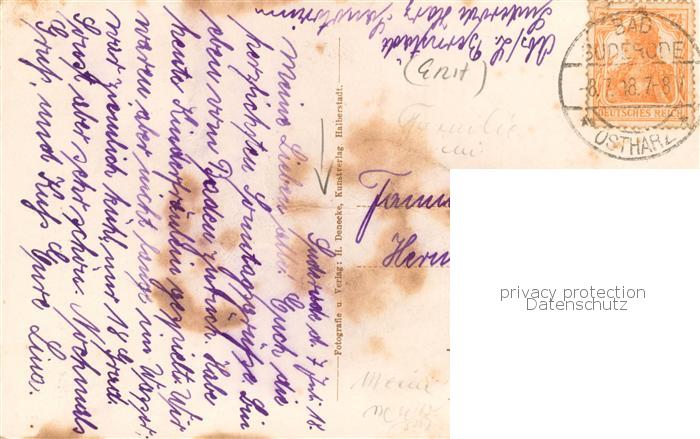 Suderode d. 7. Juli 18.
Meine Lieben alle! Euch die
herzlichsten Sonntagsgrüße. Bin
eben vom Baden zurück. Habe
heute Kinderfräulein gespielt. Wir
waren aber nicht lange im Wasser,
war ziemlich kühl, nur 18 Grad.
Sonst aber sehr schön. Nochmals
Gruß und Kuß Eure Lina.
Abs/ L. Bernstädt
Suderode Harz Sanatorium
(Enit)
Fotografie u Verlag: H. Denecke, Kunstverlag Halberstadt.
Familie
Herm
BAD
SUDERODE
-8.7.18.7-8
OSTHARZ
DEUTSCHES REICH
7½
privacy protection
Datenschutz